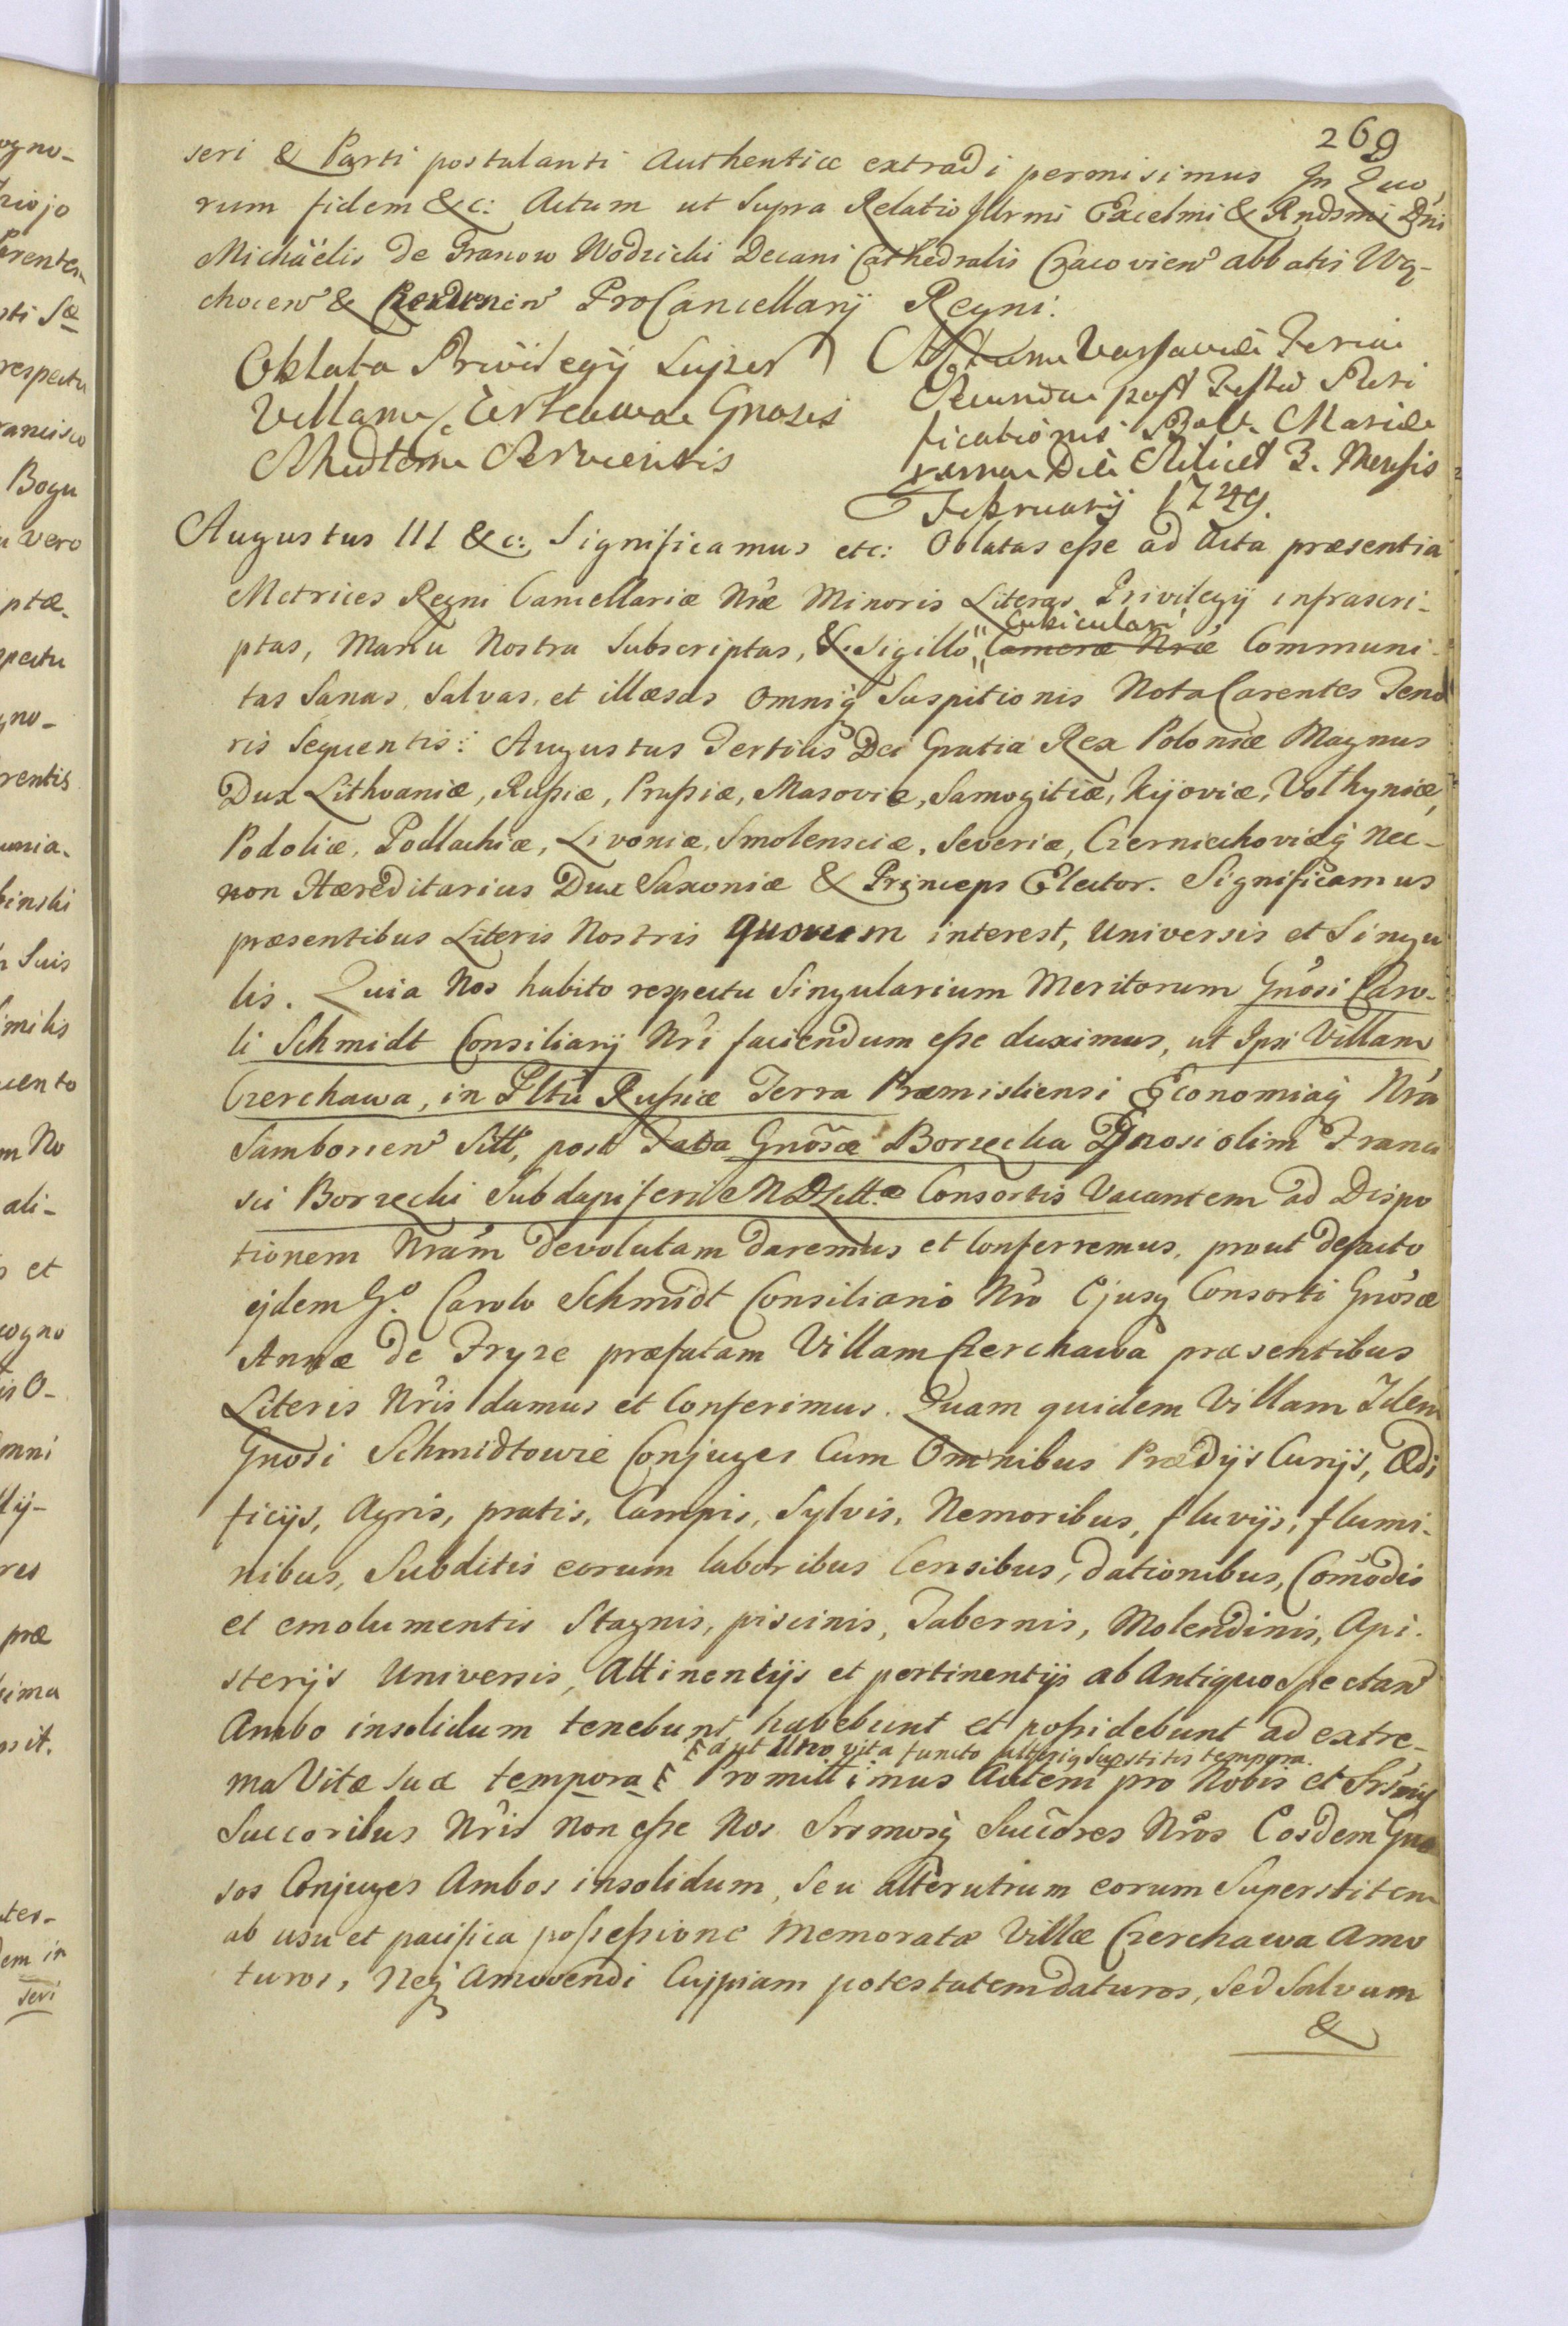 269
seri & Parti postulanti Authentice extradi permisimus In Quo
rum fidem &c: Actum ut supra Relatio Illrmi Excelmi & Rndsmi Dni
Michäelis de Granow Wodzicki Decani Cathedralis Cracovien abbatis Wą-
chocen & ProCancellarij Regni.
Oblata Privilegij super
Villam Czerchawa Gnosis
Servientis
Actum Varsaviæ Feria
Secunda post Festū Puri
ficationis Mariæ
Die 3. Mensis
Februarij 1749.
Augustus III &c: Significamus etc: Oblatas eſse ad Acta præsentia
Metrices Regni Cancellariæ Nræ Minoris Literas Privilegij infrascri-
ptas, Manu Nostra Subscriptas, & Sigillo "Cameræ Nræ Communi-
Cubiculari
tas Sanas, Salvas, et illæsas omniq Suspitionis Nota Carentes Teno
ris Sequentis: Augustus Tertius Dei Gratia Rex Poloniæ Magnus
Dux Lithvaniæ, Ruſsiæ, Pruſsiæ, Masoviæ, Samogitiæ, Kijoviæ, Volhyniæ,
Podoliæ, Podlachiæ, Livoniæ, Smolensciæ, Severiæ, Czerniechoviæq Nec-
non Hæreditarius Dux Saxoniæ & Princeps Elector. Significamus
præsentibus Literis Nostris quorum interest, Universis et Singu
lis. Quia Nos habito respectu Singularium Meritorum Gnosi Caro-
li Schmidt Consiliarij Nri faciendum eſse duximus, ut Ipsi Villam
Czerchawa, in Plttu Ruſsiæ Terra Præmisliensi Economiaq Nra
Samborien Sitt, post Gnosæ Borzęcka Gnosi olim Franci
sci Borzęcki Subdapiferi Consortis Vacantem ad Dispo
tionem Nram devolutam daremus et Conferremus, prout defacto
ejdem G.o Carolo Schmidt Consiliario Nro Ejusq Consorti Gnosæ
Annæ de Fryze præfatam Villam Czerchawa præsentibus
Literis Nris damus et Conferimus. Quam quidem Villam Idem
Gnosi Schmidtowie Conjuges Cum Omnibus Prædijs Curijs, Ædi
ficijs, Agris, pratis, Campis, Sylvis, Nemoribus, fluvijs, flumi-
nibus, Subditis eorum laboribus Censibus, dationibus, Comodis
et emolumentis Stagnis, piscinis, Tabernis, Molendinis, Api-
sterijs Universis, Attinentijs et pertinentijs ab Antiquo Spectan
Ambo insolidum tenebunt habebunt et poſsidebunt ad extre-
aut Uno vita functo alteriq Supstitis tempora.
ma Vitæ suæ tempora Promittimus Autem pro Nobis et Srsmis
Succoribus Nris non eſse Nos Srsmosq Succores Nros Eosdem Gno
sos Conjuges Ambos insolidum, Seu alterutrum eorum Superstitem
ab usu et pacifica poſseſsione Memoratæ Villæ Czerchawa Amo
turos, Neq Amovendi Cujpiam potestatem daturos, Sed Salvum
&